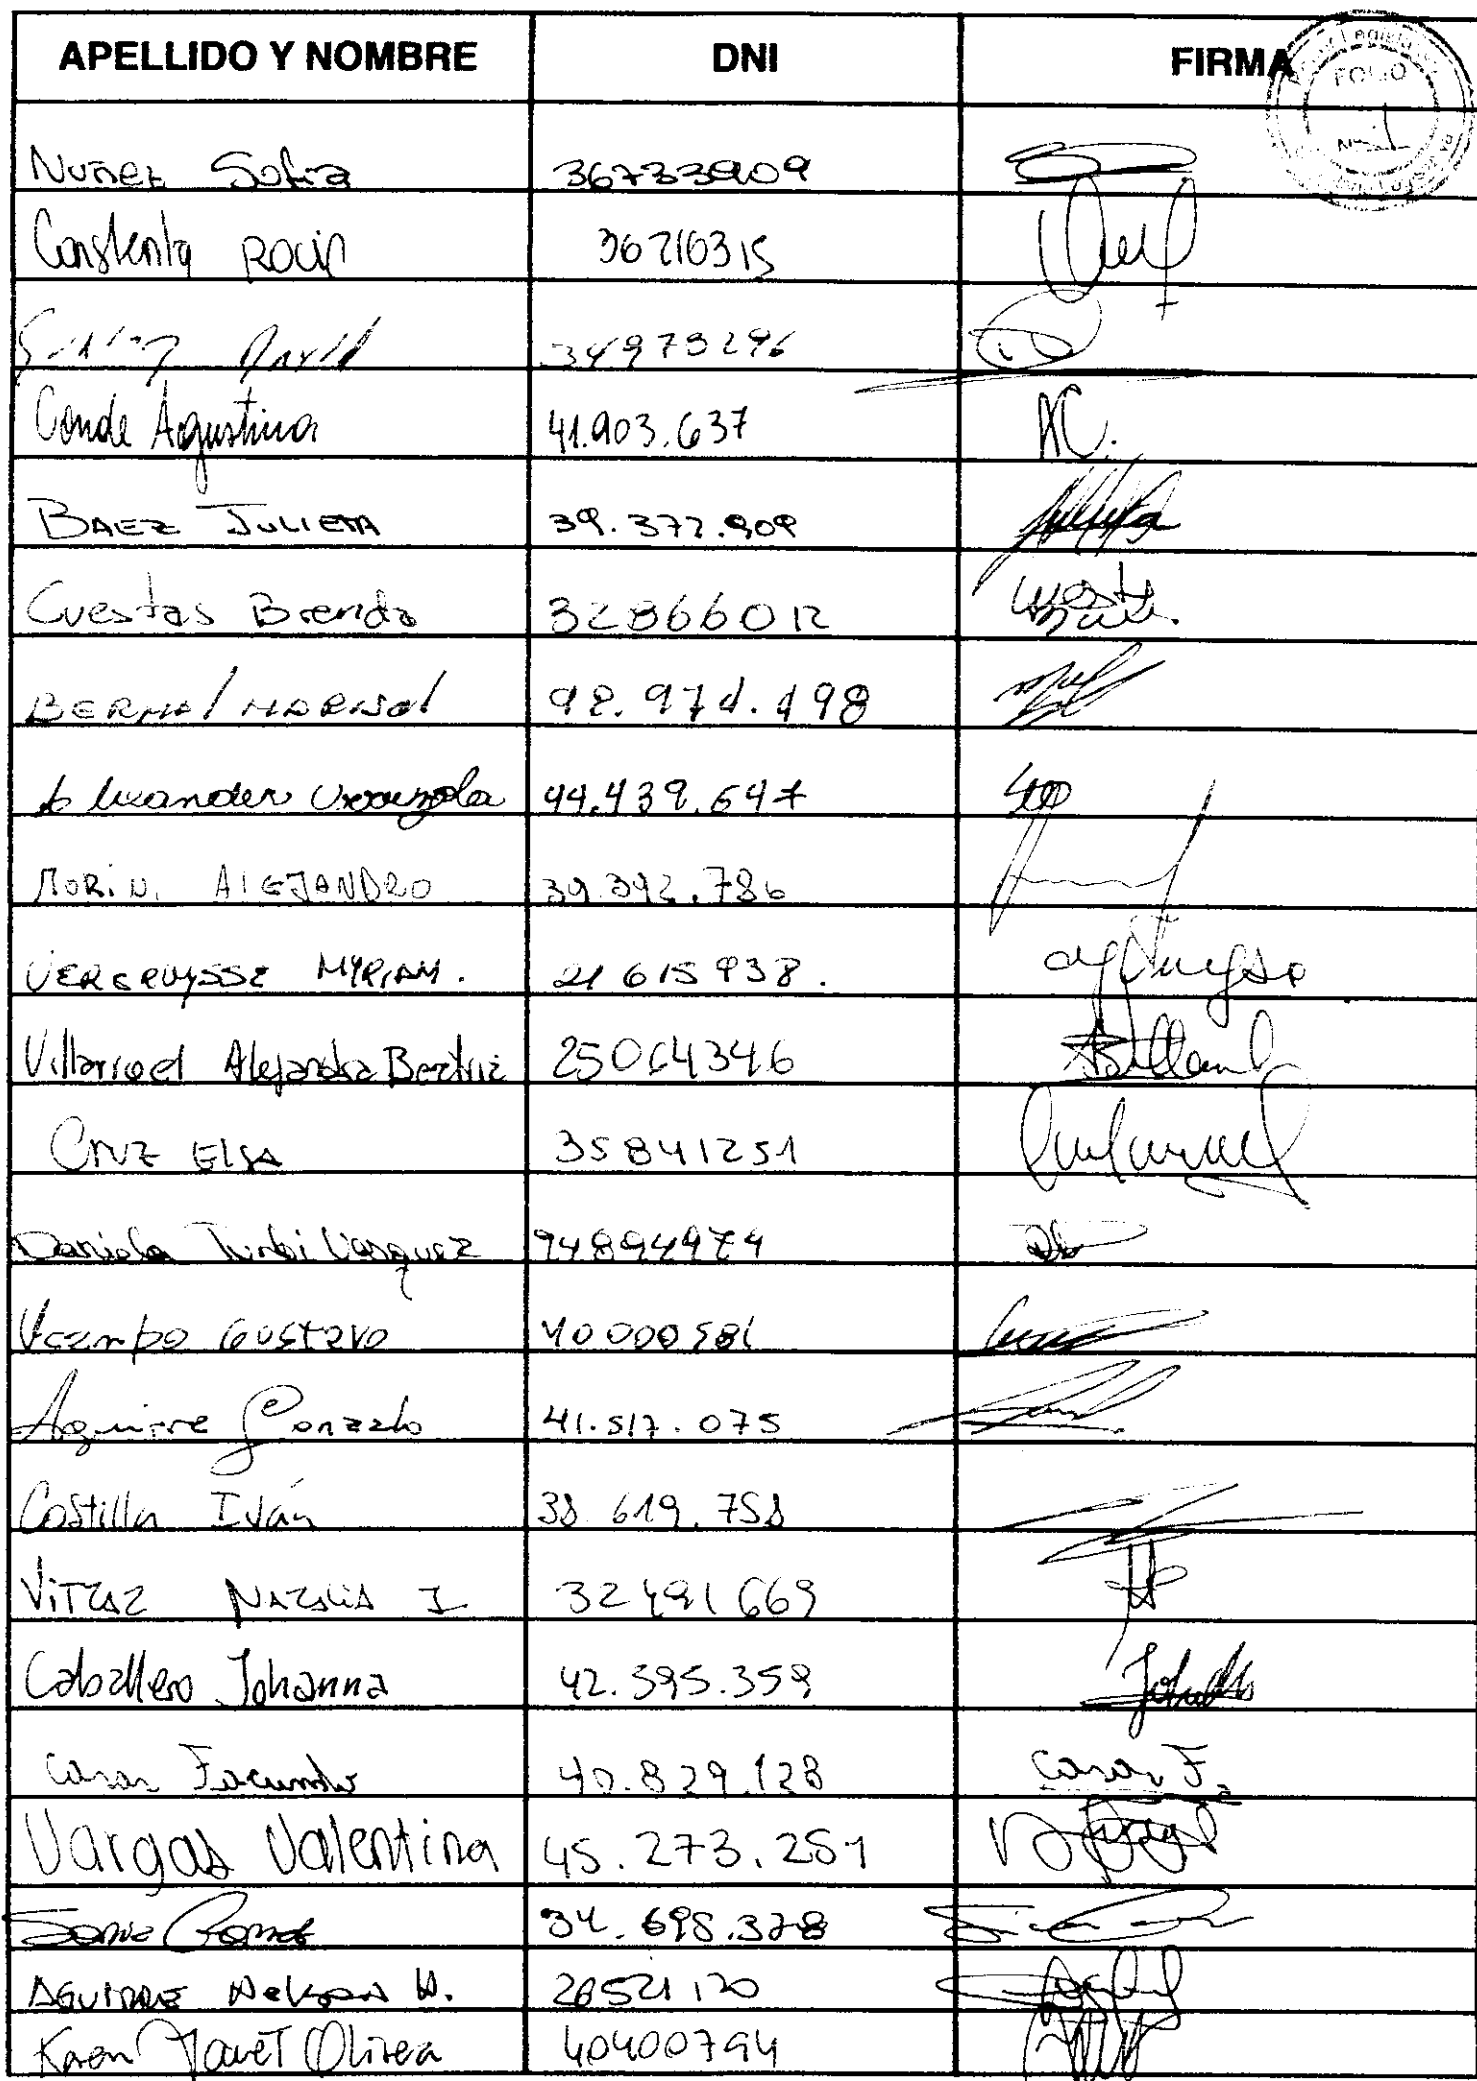 APELLIDO Y NOMBRE DNI FIRMA
FOLIO
Nuñez Sofia 36733909
Constenla Rocio 36210315
David 34973296
Conde Agustina 41.903.637 AC.
BAEZ JULIETA 39.377.909
Cuestas Brenda 32866012
BERNAl MARISOl
Urzuola
MORIN. AlEJANDRO 39.392.786
VERCRUYSSE MYRIAM. 21 615 938.
Villarroel Alejandra Beatriz 25064346
CRUZ ElSA 35841251
Daniela Vasquez 94894974
Ocampo Gustavo 40000581
Aguirre Gonzalo 41.517.075
Costilla Iván 38 619.758
NATALIA I 32491669
Caballero Johanna 42.595.359
Casas Facundo 40.829.128 Casas F.
Vargas Valentina 45.273.251
34.695.378
AGUIRRE Nelson W. 26521120
Karen Janet Olivera 40400794